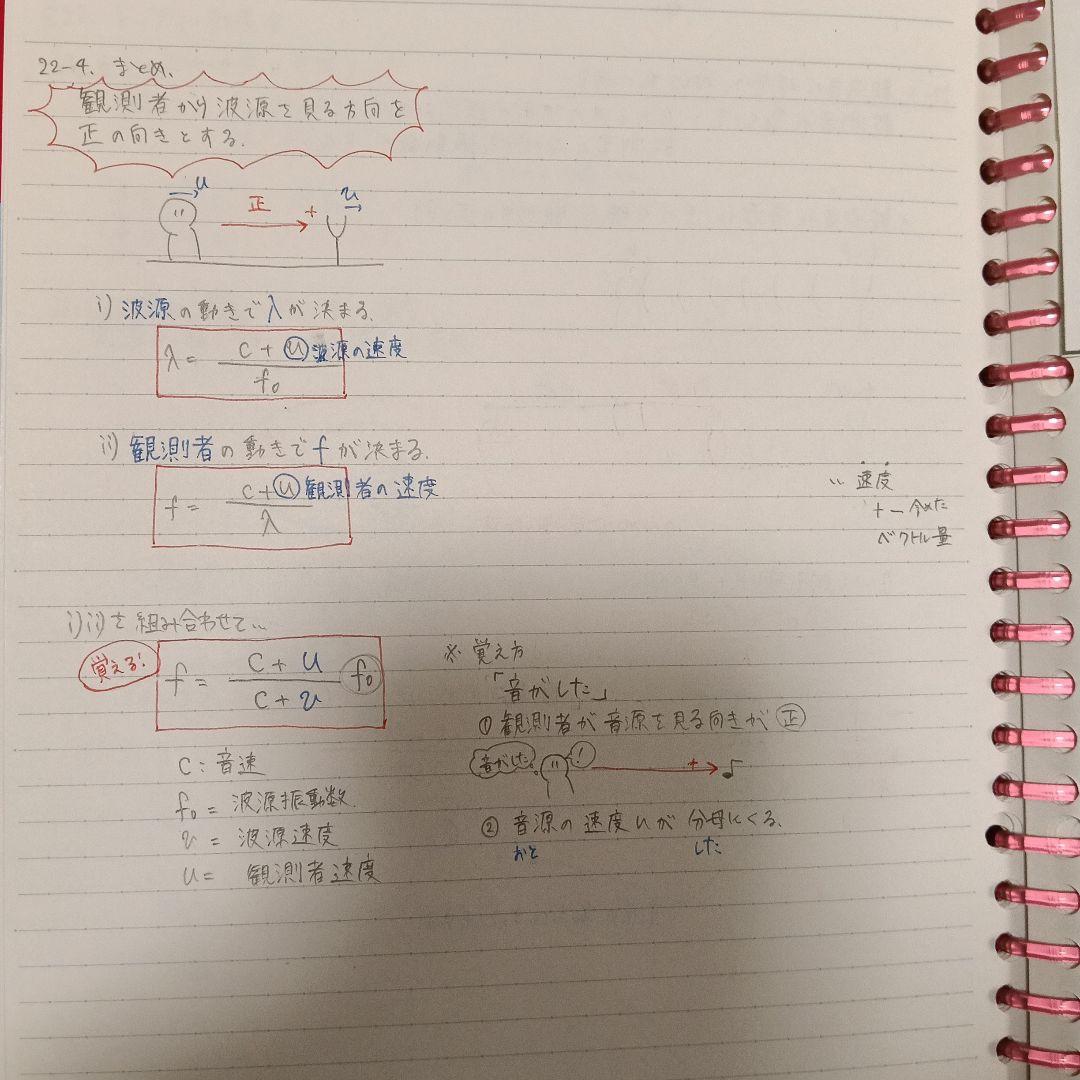 22-4. まとめ.
観測者から波源を見る方向を
正の向きとする.
u
正
+
v
i) 波源の動きでλが決まる.
λ = (c + u)/f₀ 波源の速度
ii) 観測者の動きでfが決まる.
f = (c + u)/λ 観測者の速度
速度
+ー含めた
ベクトル量
i) ii)を組み合わせて…
覚える!
f = (c + u)/(c + v) f₀
※ 覚え方
「音がした」
① 観測者が音源を見る向きが正
c : 音速
音がした
!
+
f₀ = 波源振動数
v = 波源速度
② 音源の速度uが分母にくる.
おと
した
u = 観測者速度